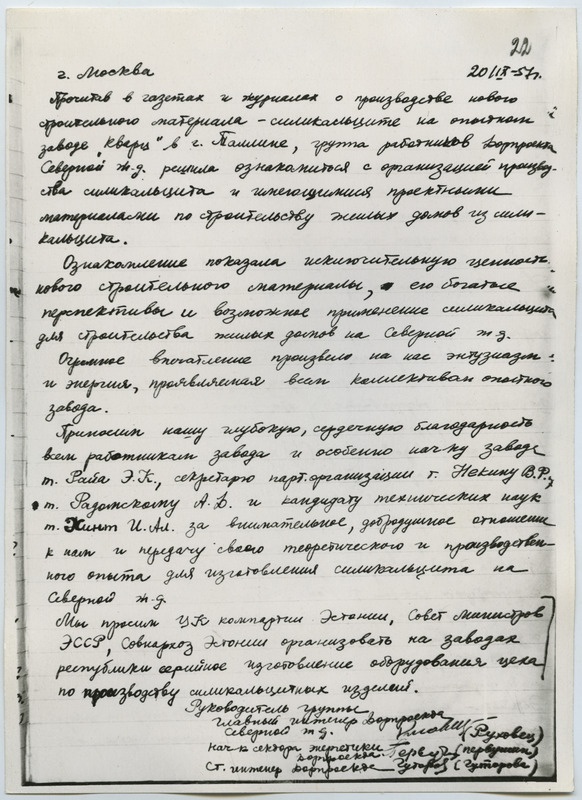 22
г. Москва 20/IX-57г.
Прочитав в газетах и журналах о производстве нового
строительного материала - силикальците на опытном
заводе Кварц" в г. Таллине, группа работников Дорпроекта
Северной ж.д. решила ознакомиться с организацией производ-
ства силикальцита и имеющимися проектными
материалами по строительству жилых домов из сили-
кальцита.
Ознакомление показала исключительную ценность
нового строительного материалы, его богатые
перспективы и возможное применение силикальцита
для строительства жилых домов на Северной ж.д.
Огромное впечатление произвело на нас энтузиазм
и энергия, проявляемая всем коллективам опытного
завода.
Приносим нашу глубокую, сердечную благодарность
всем работникам завода и особенно нач-ку завода
т. Райа Э.К., секретарю парт.организации т. Некину В.Р.,
т. Радомскому А.В. и кандидату технических наук
т. Хинт И.Ал. за внимательное, добродушное отношение
к нам и передачу своего теоретического и производствен-
ного опыта для изготовления силикальцита на
Северной ж.д.
Мы просим ЦК компартии Эстонии, Совет Министров
ЭССР, Совнархоз Эстонии организовать на заводах
республики серийное изготовление оборудования цеха
по производству силикальцитных изделий.
Руководитель группы
главный инженер Дорпроекта
Северной ж.д. (Руховец)
нач-к сектора энергетики
Дорпроекта (Первушин)
Ст. инженер Дорпроекта Гуторов (Гуторова)